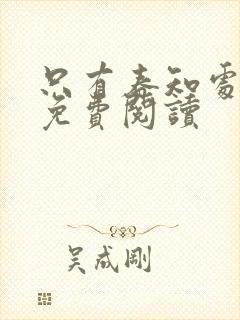 只有春知處
免費閱讀
吳成剛